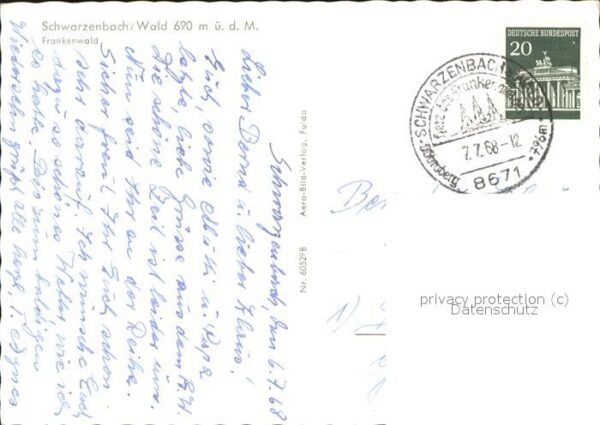 Schwarzenbach/Wald 690 m ü. d. M.
Frankenwald
Schwarzenbach, den 6.7.68
Lieber Bernd u. lieber Klaus!
Euch, sowie Mutti u. Papa
letzte, liebe Grüße aus dem F.W.
Die schöne Zeit ist leider um.
Nun seid Ihr an der Reihe.
Sicher freut Ihr Euch schon
sehr darauf. Ich wünsche Euch
dazu so schönes Wetter wie ich
es hatte. Bis zum baldigen
Wiedersehn grüßt alle herzl.
Aero-Bild-Verlag, Fulda
Nr. 60529B
DEUTSCHE BUNDESPOST
20
SCHWARZENBACH/WALD
7.7.68-12
8671
Döbraberg 796m
1)
privacy protection (c)
Datenschutz